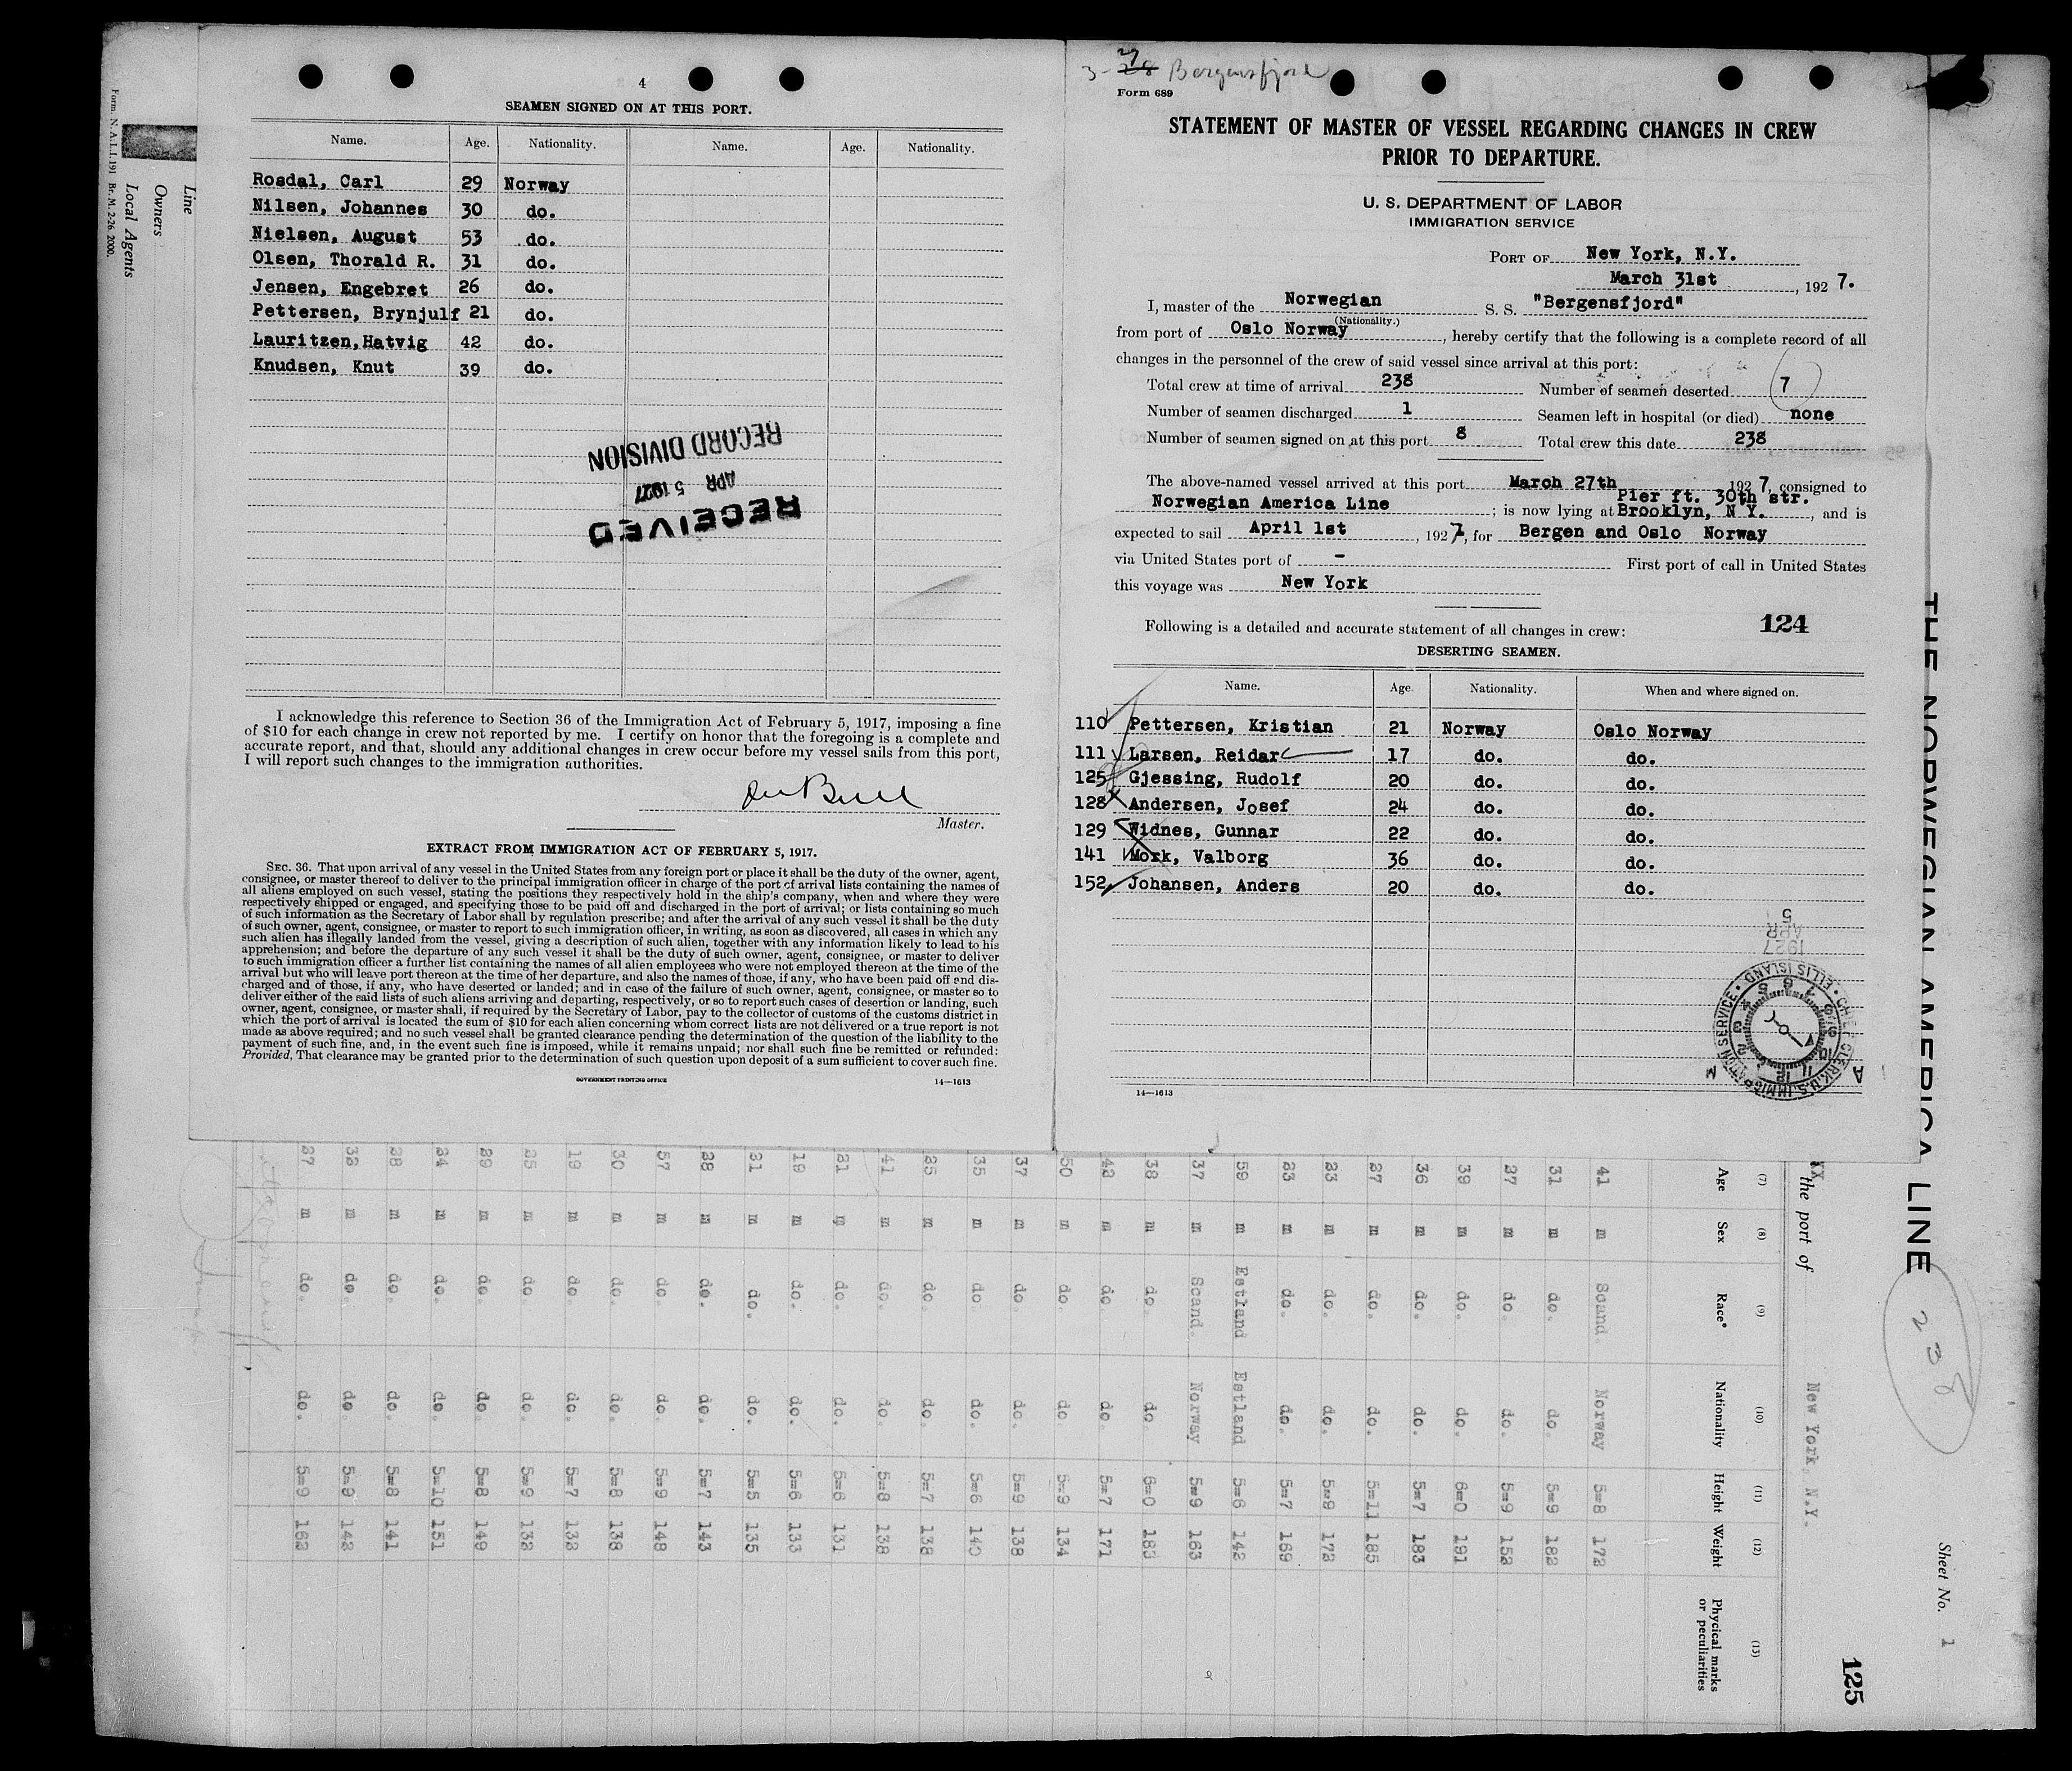 4
SEAMEN SIGNED ON AT THIS PORT.
Name. Age. Nationality. Name. Age. Nationality.
Rosdal, Carl 29 Norway
Nilsen, Johannes 30 do.
Nielsen, August 53 do.
Olsen, Thorald R. 31 do.
Jensen, Engebret 26 do.
Pettersen, Brynjulf 21 do.
Lauritzen, Hatvig 42 do.
Knudsen, Knut 39 do.
RECEIVED
APR 5 1927
RECORD DIVISION
I acknowledge this reference to Section 36 of the Immigration Act of February 5, 1917, imposing a fine
of $10 for each change in crew not reported by me. I certify on honor that the foregoing is a complete and
accurate report, and that, should any additional changes in crew occur before my vessel sails from this port,
I will report such changes to the immigration authorities.
Master.
EXTRACT FROM IMMIGRATION ACT OF FEBRUARY 5, 1917.
SEC. 36. That upon arrival of any vessel in the United States from any foreign port or place it shall be the duty of the owner, agent,
consignee, or master thereof to deliver to the principal immigration officer in charge of the port of arrival lists containing the names of
all aliens employed on such vessel, stating the positions they respectively hold in the ship's company, when and where they were
respectively shipped or engaged, and specifying those to be paid off and discharged in the port of arrival; or lists containing so much
of such information as the Secretary of Labor shall by regulation prescribe; and after the arrival of any such vessel it shall be the duty
of such owner, agent, consignee, or master to report to such immigration officer, in writing, as soon as discovered, all cases in which any
such alien has illegally landed from the vessel, giving a description of such alien, together with any information likely to lead to his
apprehension; and before the departure of any such vessel it shall be the duty of such owner, agent, consignee, or master to deliver
to such immigration officer a further list containing the names of all alien employees who were not employed thereon at the time of the
arrival but who will leave port thereon at the time of her departure, and also the names of those, if any, who have been paid off and dis-
charged and of those, if any, who have deserted or landed; and in case of the failure of such owner, agent, consignee, or master so to
deliver either of the said lists of such aliens arriving and departing, respectively, or so to report such cases of desertion or landing, such
owner, agent, consignee, or master shall, if required by the Secretary of Labor, pay to the collector of customs of the customs district in
which the port of arrival is located the sum of $10 for each alien concerning whom correct lists are not delivered or a true report is not
made as above required; and no such vessel shall be granted clearance pending the determination of the question of the liability to the
payment of such fine, and, in the event such fine is imposed, while it remains unpaid; nor shall such fine be remitted or refunded:
Provided, That clearance may be granted prior to the determination of such question upon deposit of a sum sufficient to cover such fine.
GOVERNMENT PRINTING OFFICE 14—1613
Form N. A. L. I. 191 Br. M. 2-26. 2000.
Local Agents
Owners
Line
Bergensfjord
Form 689
STATEMENT OF MASTER OF VESSEL REGARDING CHANGES IN CREW
PRIOR TO DEPARTURE.
U. S. DEPARTMENT OF LABOR
IMMIGRATION SERVICE
PORT OF New York, N.Y.
March 31st, 1927.
I, master of the Norwegian S. S. "Bergensfjord"
(Nationality.)
from port of Oslo Norway, hereby certify that the following is a complete record of all
changes in the personnel of the crew of said vessel since arrival at this port:
Total crew at time of arrival 238 Number of seamen deserted 7
Number of seamen discharged 1 Seamen left in hospital (or died) none
Number of seamen signed on at this port 8 Total crew this date 238
The above-named vessel arrived at this port March 27th 1927, consigned to
Norwegian America Line; is now lying at Pier ft. 30th str. Brooklyn, N Y., and is
expected to sail April 1st, 1927, for Bergen and Oslo Norway
via United States port of - First port of call in United States
this voyage was New York
Following is a detailed and accurate statement of all changes in crew: 124
DESERTING SEAMEN.
Name. Age. Nationality. When and where signed on.
110 Pettersen, Kristian 21 Norway Oslo Norway
111 Larsen, Reidar 17 do. do.
125 Gjessing, Rudolf 20 do. do.
128 Andersen, Josef 24 do. do.
129 Widnes, Gunnar 22 do. do.
141 Mork, Valborg 36 do. do.
152 Johansen, Anders 20 do. do.
5
APR
1927
CHIEF CLERK U.S. IMMIGRATION SERVICE • ELLIS ISLAND •
14—1613
THE NORWEGIAN AMERICA LINE
238
Sheet No. 1
125
the port of New York, N.Y.
(7) (8) (9) (10) (11) (12) (13)
Age Sex Race* Nationality Height Weight Physical marks or peculiarities
41 m Scand. Norway 5=8 172
31 m do. do. 5=9 182
27 m do. do. 5=9 152
39 m do. do. 6=0 191
36 m do. do. 5=7 183
27 m do. do. 5=11 185
23 m do. do. 5=9 172
23 m do. do. 5=7 169
59 m Estland Estland 5=6 142
37 m Scand. Norway 5=9 163
38 m do. do. 6=0 183
42 m do. do. 5=7 171
50 m do. do. 5=9 134
37 m do. do. 5=9 138
35 m do. do. 5=6 140
25 m do. do. 5=7 138
41 m do. do. 5=8 138
21 m do. do. 5=6 131
19 m do. do. 5=6 133
21 m do. do. 5=5 135
28 m do. do. 5=7 143
57 m do. do. 5=9 148
30 m do. do. 5=8 138
19 m do. do. 5=7 132
25 m do. do. 5=9 132
29 m do. do. 5=8 149
24 m do. do. 5=10 151
28 m do. do. 5=8 141
32 m do. do. 5=9 142
27 m do. do. 5=9 162